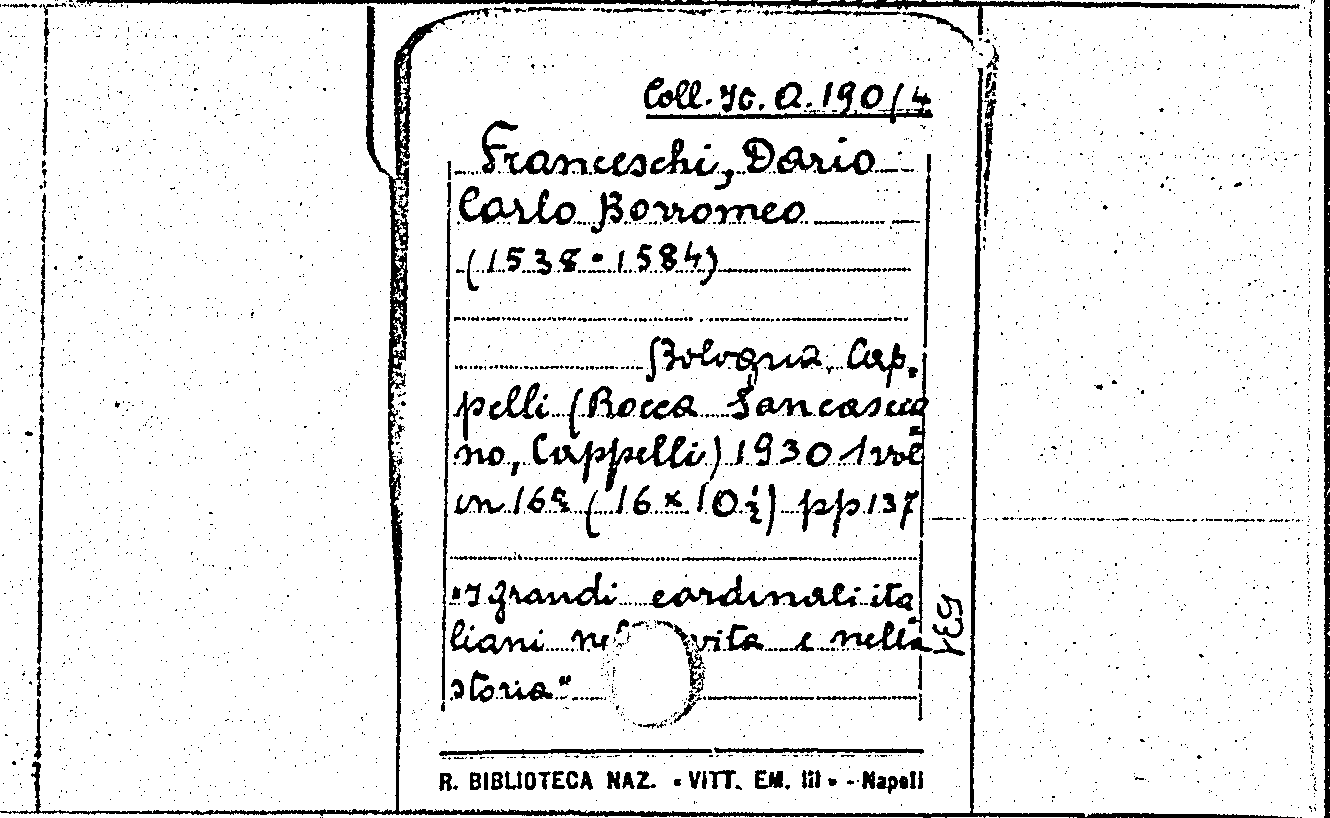 Coll. It. A. 190/4
Franceschi, Dario
Carlo Borromeo
(1538-1584)
Bologna, Cap-
pelli (Rocca San Cascia
no, Cappelli) 1930 1 vol
in 16º (16 x 10½) pp 137
"I grandi cardinali ita
liani nella vita e nella
storia"
R. BIBLIOTECA NAZ. « VITT. EM. III » - Napoli